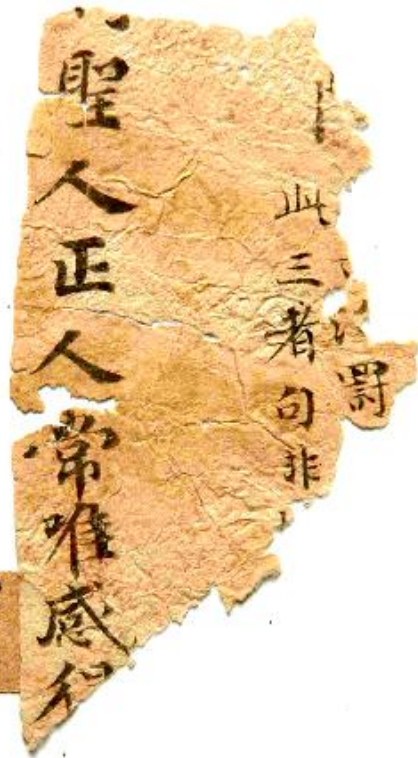 罸
此三者句非
聖人正人常唯感